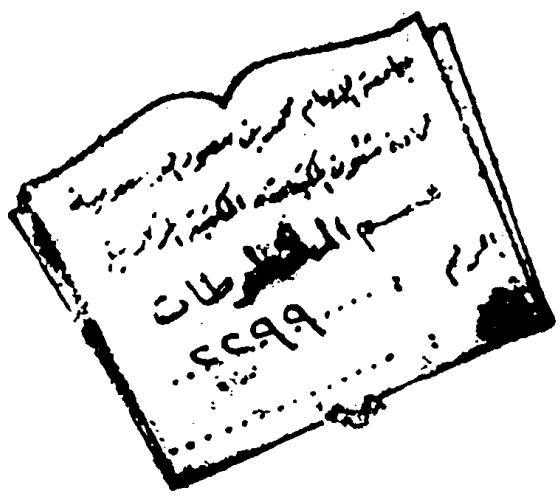 جامعة الإمام محمد بن سعود الإسلامية
عمادة شؤون المكتبات المكتبة المركزية
قسم المخطوطات
الرقم : ٤٤٩٩